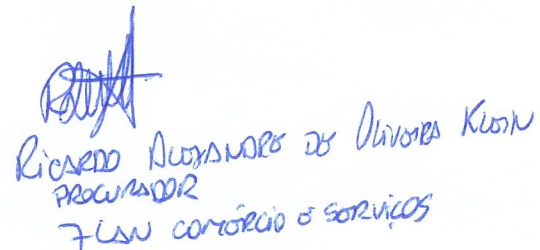 Ricardo Alexandre de Oliveira Klein
PROCURADOR
7LAN COMÉRCIO E SERVIÇOS